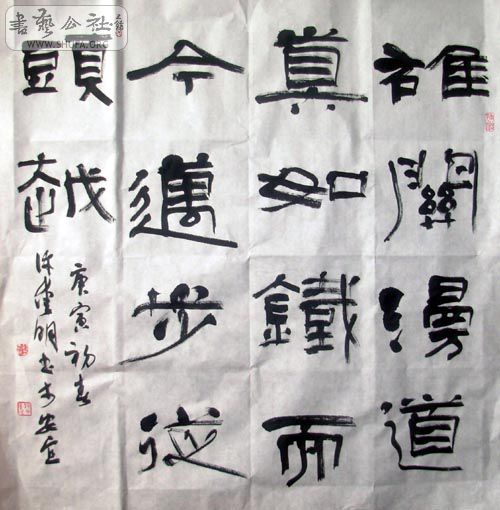 書藝公社
WWW.SHUFA.ORG
雄關漫道
真如鐵而
今邁步從
頭越
庚寅初春
明書於